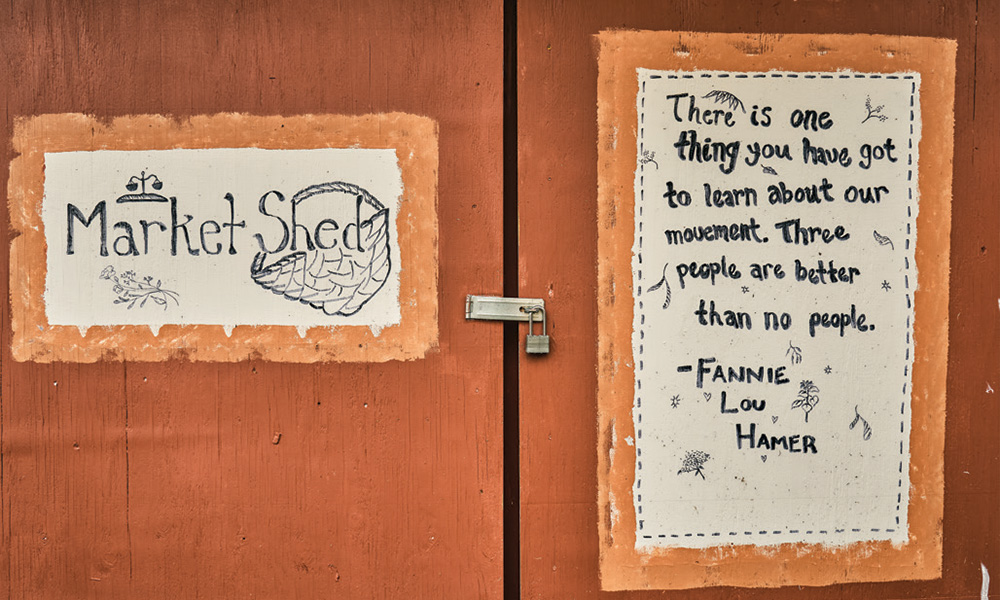 Market Shed
There is one
thing you have got
to learn about our
movement. Three
people are better
than no people.
-FANNIE
LOU
HAMER